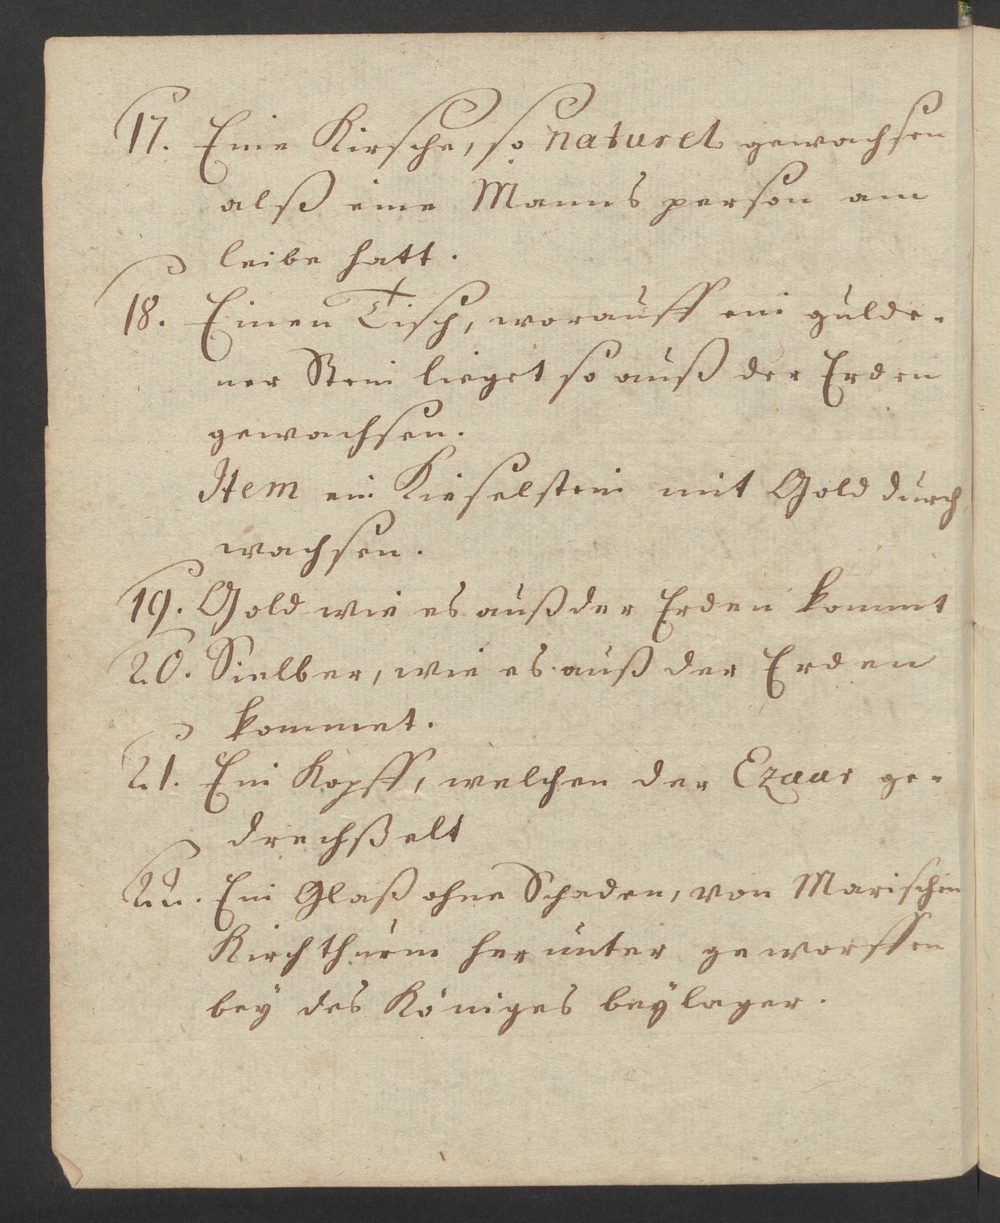 17. Eine Kirsche, so naturel gewachsen
alß eine Manns person am
leibe hatt.
18. Einen Tisch, worauff ein gulde-
ner Stein lieget so auß der Erden
gewachsen.
Item ein Kieselstein mit Gold durch
wachsen.
19. Gold wie es auß der Erden kommt
20. Sielber, wie es auß der Erden
kommet.
21. Ein Kopff, welchen der Czaar ge-
drechßelt
22. Ein Glaß ohne Schaden, von Marischen
Kirchthurm herunter geworffen
bey des Königes beylager.